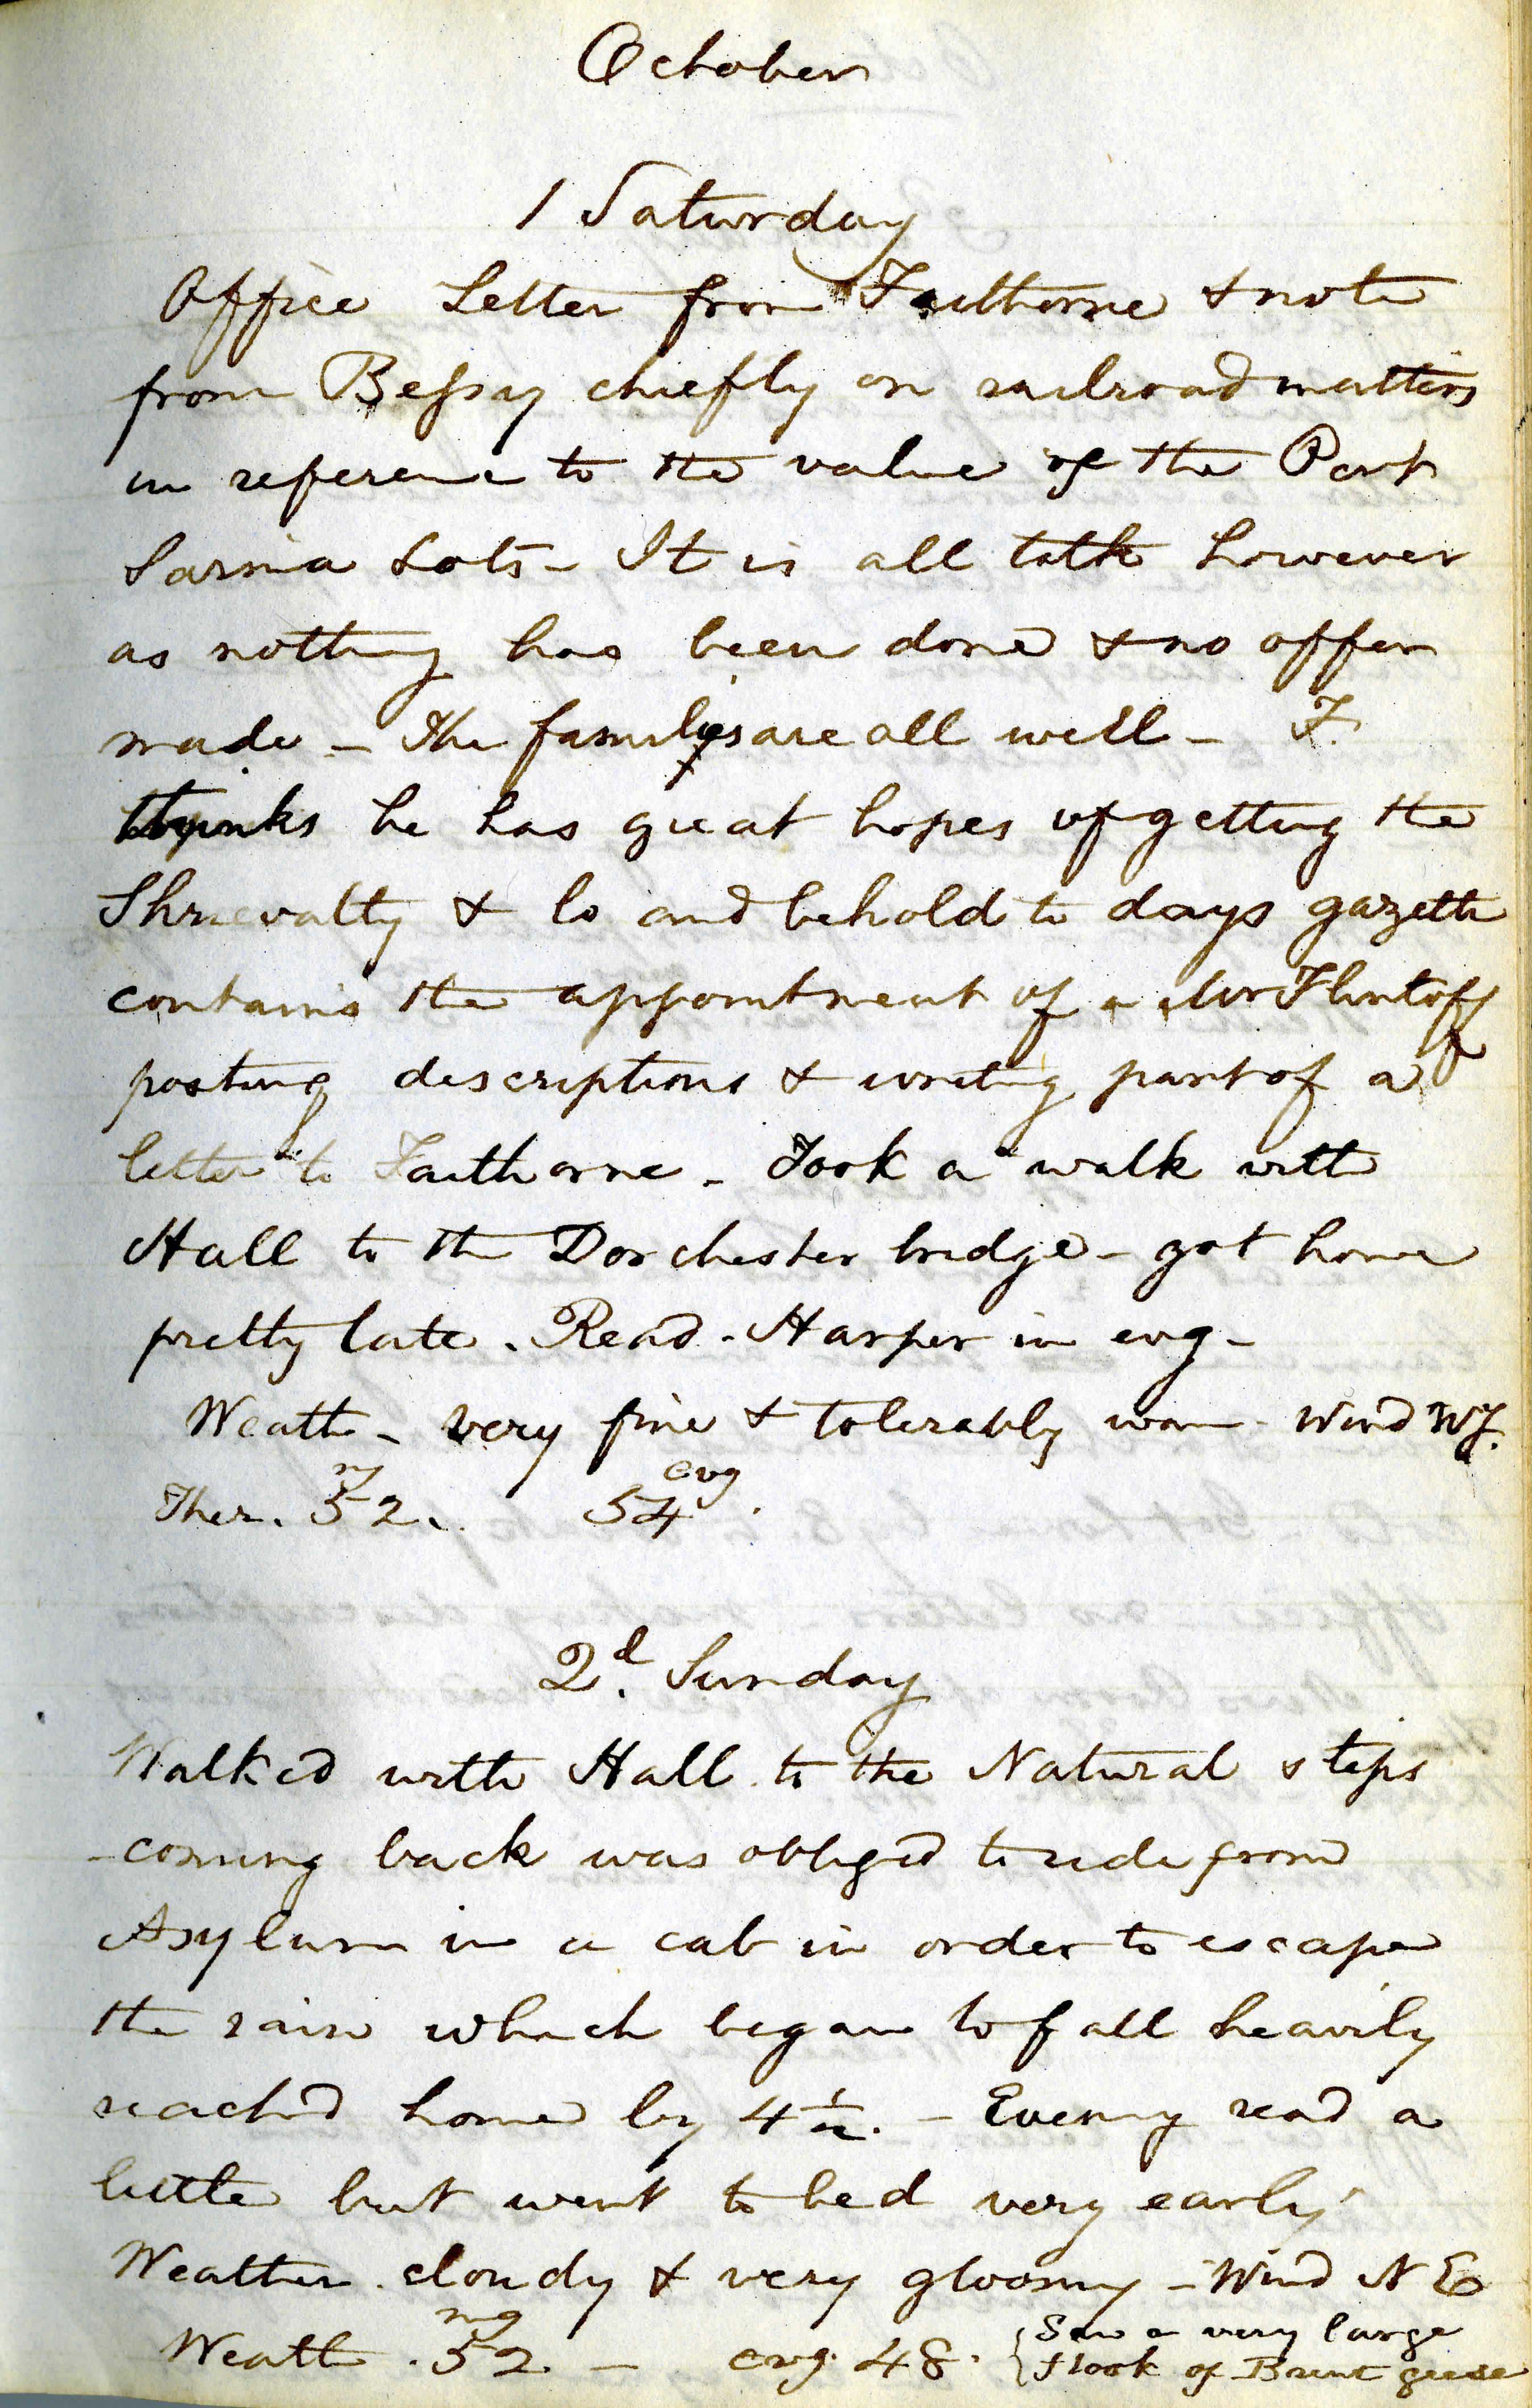 October
1 Saturday
Office Letter from Faithorne & note
from Bessy chiefly on railroad matters
in reference to the value of the Port
Sarnia Lots - It is all talk however
as nothing has been done & no offer
made - The families are all well - F.
thinks he has great hopes of getting the
Shrievalty & lo and behold to days gazette
contains the appointment of a Mr Flintoff
posting descriptions & writing part of a
letter to Faithorne - Took a walk with
Hall to the Dorchester bridge - got home
pretty late. Read. Harper in evg -
Weath - very fine & tolerably warm - Wind Wy.
Ther. mg 52. 54 evg.
2d. Sunday
Walked with Hall to the Natural steps
coming back was obliged to ride from
Asylum in a cab in order to escape
the rain which began to fall heavily
reached home by 4 1/2. - Evening read a
little but went to bed very early
Weather. cloudy & very gloomy - Wind N E
Weath. mg 52. - evg. 48. { Saw a very large
flock of Brent geese